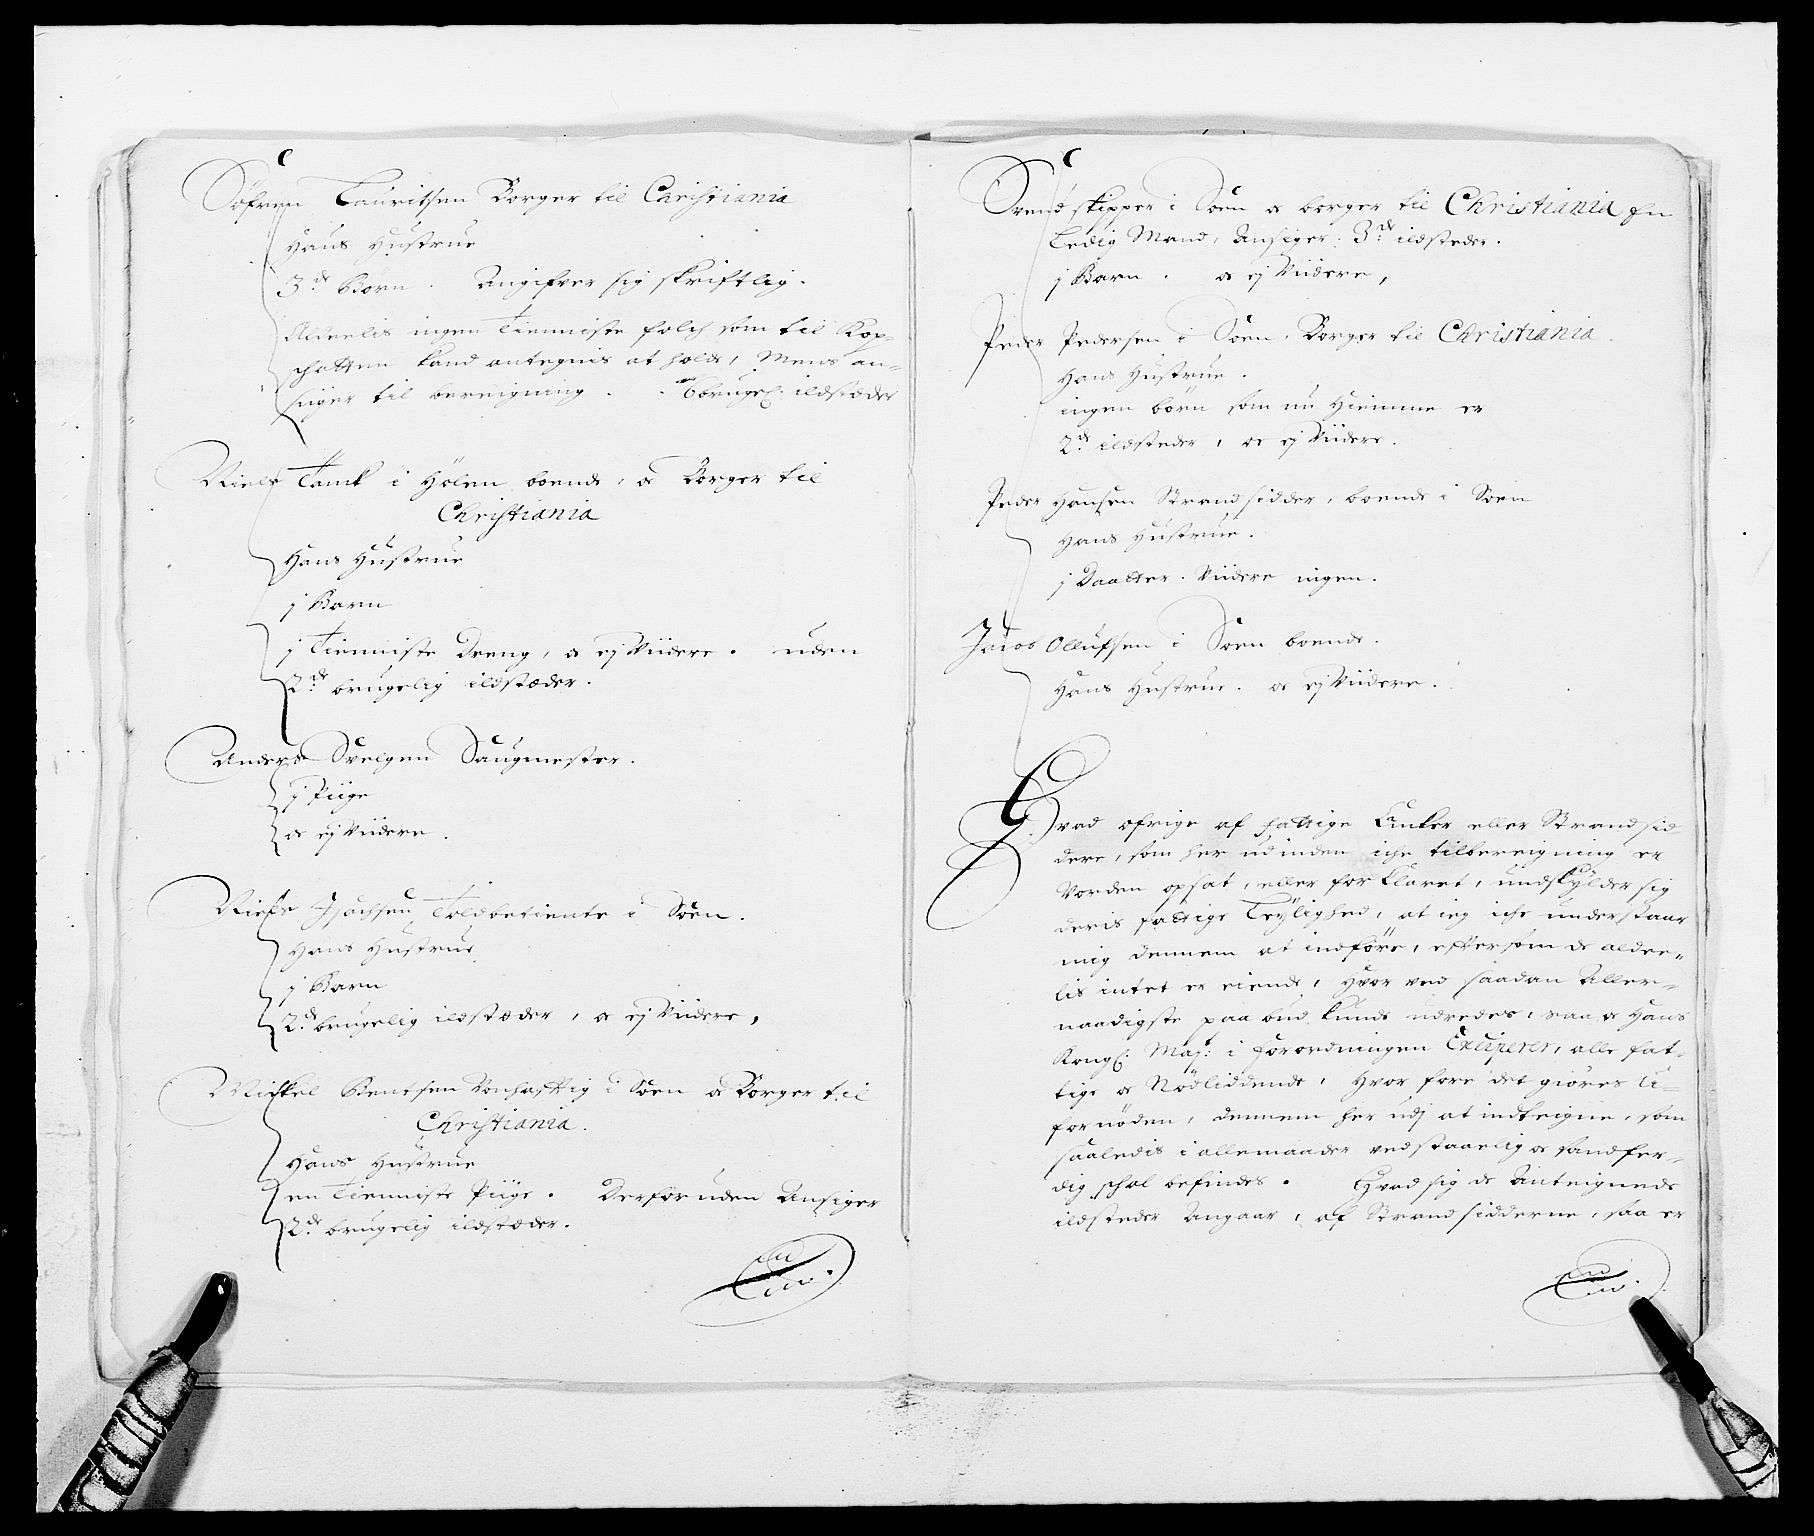 Søfren Lauritsen Borger til Christiania
Hans Hustrue
3de Børn. Angifver sig skriftlig.
Aldeelis ingen Tienniste folch som til Kop-
schatten kand antegnis at holde, Mens an-
siiger til bereigning. 6 brugel: ildstæder
Niels Tanch i Hølen boende, oc Borger til
Christiania
Hans Hustrue
j Barn
j Tienniste Dreng, oc ej Viidere. uden
2de brugelig ildstæder.
Anders Svelgen Saugmester.
j Piige
oc ej Viidere.
Niels Jsachsen Toldbetiente i Soen.
Hans Hustrue
j Barn
2de brugelig ildstæder, oc ej Viidere,
Michel Bentsen Vonhafftig i Soen oc Borger til
Christiania.
Hans Hustrue
en Tienniste Piige. Derforuden Ansiger
2de brugelig ildstæder.
Svend skipper i Soen oc borger til Christiania En
Ledig Mand, Ansiger: 3de ildsteder.
j Barn. oc ej Viidere,
Peder Pedersen i Soen, Borger til Christiania.
Hans Hustrue.
ingen børn som nu Hiemme er
2de ildsteder, oc ej Viidere.
Peder Hansen Strandsidder, boende i Soen
Hans Hustrue.
j Daatter. Viidere ingen.
Jacob Ollufsen i Soen boende.
Hans Hustrue. oc ej Viidere.
Hvad ofrige af fattige Enker eller Strandsid
dere, som her udinden iche tilbereigning er
Vorden opsat, eller forklaret, undskylder sig
deris fattige Leylighed, at ieg iche understaar
mig dennem at indføre, eftersom de aldee-
lis intet er eiende, Hvor ved saadan Aller-
naadigste paabud kunde udredes, saa oc Hans
Kongl: Maj:t i forordningen Exciperer, alle fat-
tige oc Nødliddende, Hvor fore det giøres U-
fornøden, dennem her udj at indteigne, som
saaledis i allemaader vedstaaelig oc sandfer-
dig schal befindes. Hvad sig de Anteignede
ildsteder Angaar, af Strandsidderne, saa er